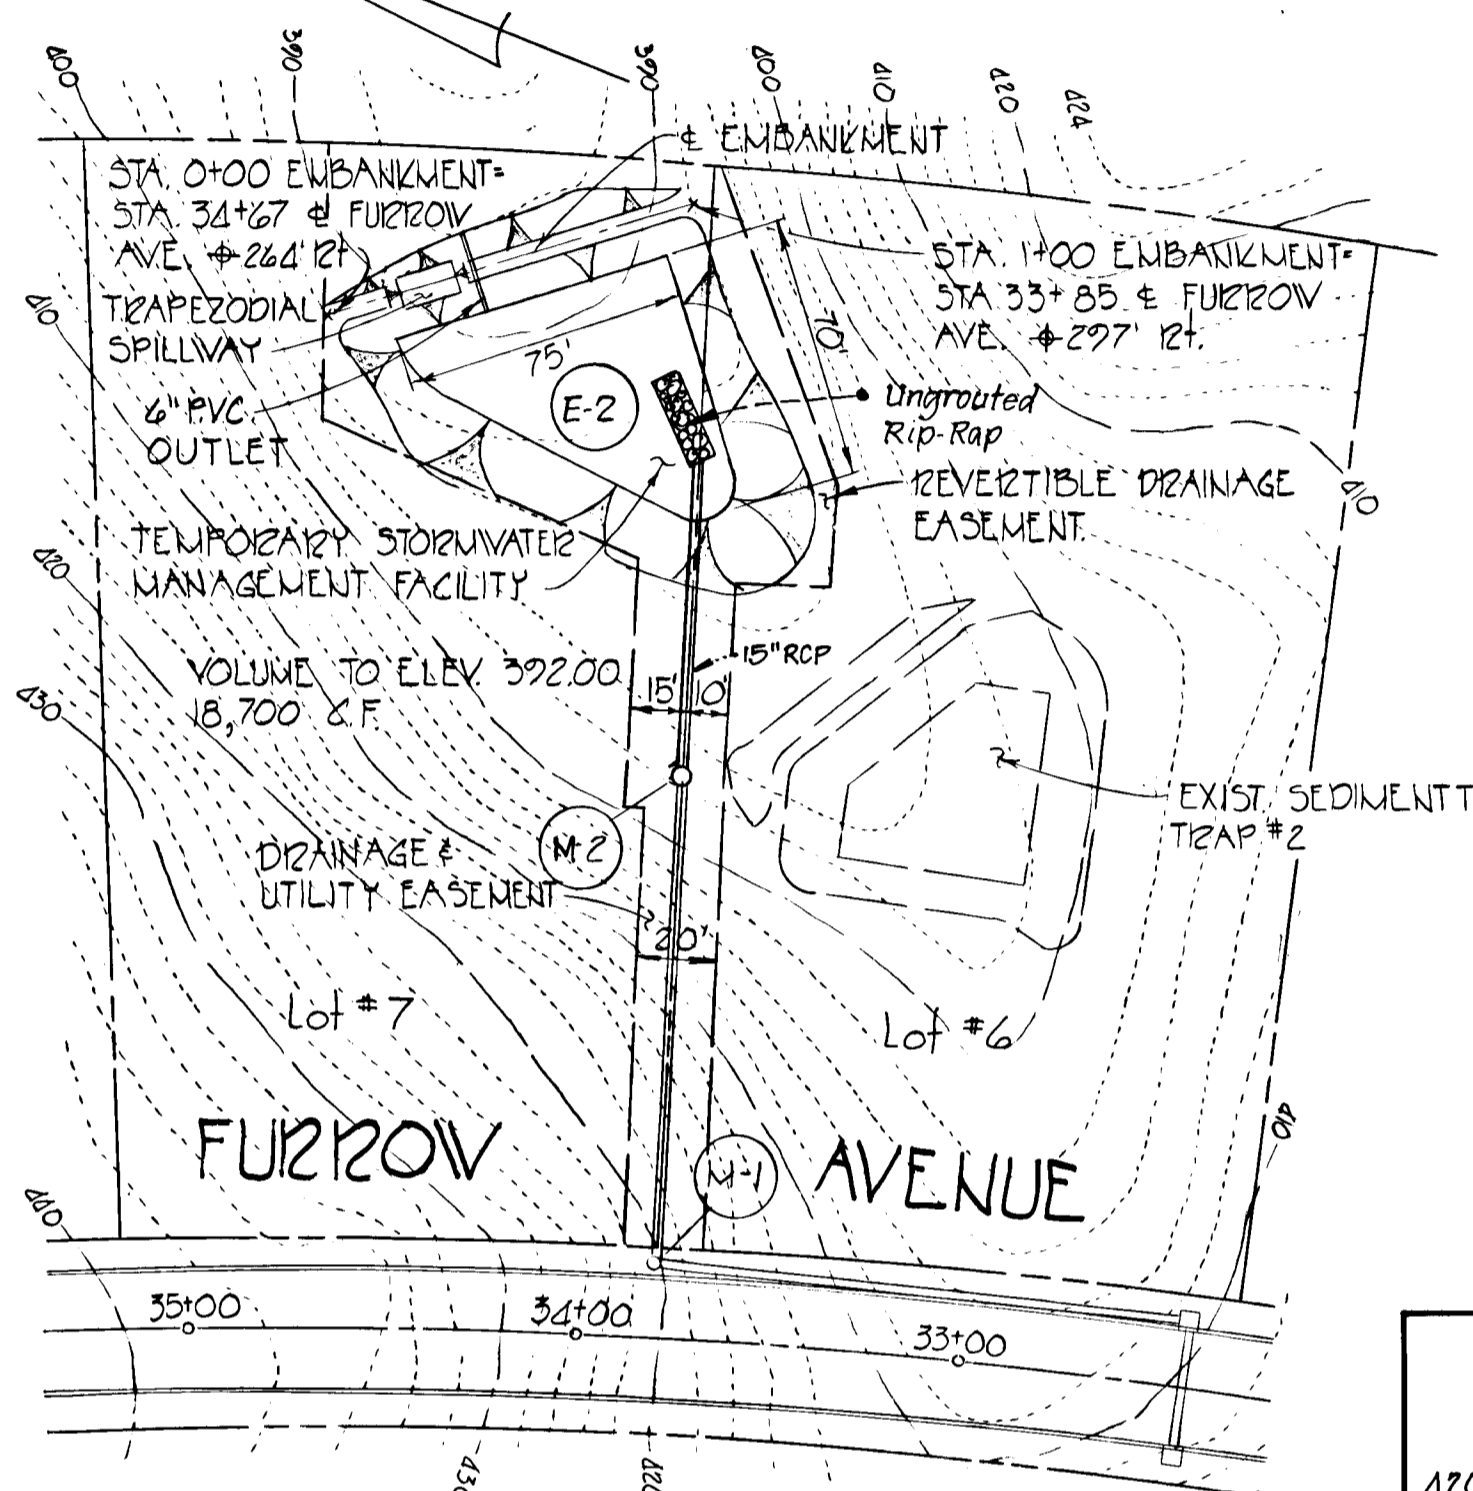 400
390
390
400
410
420
424
₵ EMBANKMENT
STA. 0+00 EMBANKMENT=
STA. 34+67 ₵ FURROW
AVE. ⌖ 264' Rt
TRAPEZODIAL
SPILLWAY
6" P.V.C.
OUTLET
STA. 1+00 EMBANKMENT=
STA 33+85 ₵ FURROW
AVE. ⌖ 297' Rt.
410
75'
70'
E-2
Ungrouted
Rip-Rap
REVERTIBLE DRAINAGE
EASEMENT.
410
TEMPORARY STORMWATER
MANAGEMENT FACILITY
420
VOLUME TO ELEV. 392.00
18,700 C.F.
15" RCP
15' 10'
430
EXIST. SEDIMENT T
TRAP #2
M-2
DRAINAGE &
UTILITY EASEMENT
20'
Lot #7
Lot #6
FURROW AVENUE
M-1
410
440
35+00
34+00
33+00
430
420
420